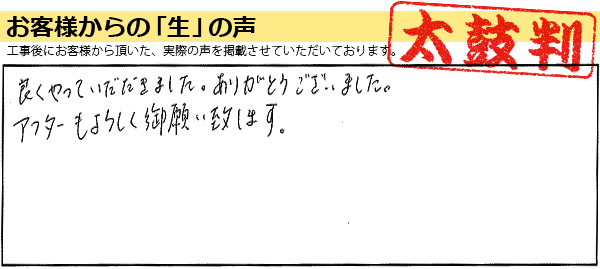 お客様からの「生」の声
工事後にお客様から頂いた、実際の声を掲載させていただいております。
太鼓判
良くやっていただきました。ありがとうございました。
アフターもよろしく御願い致します。